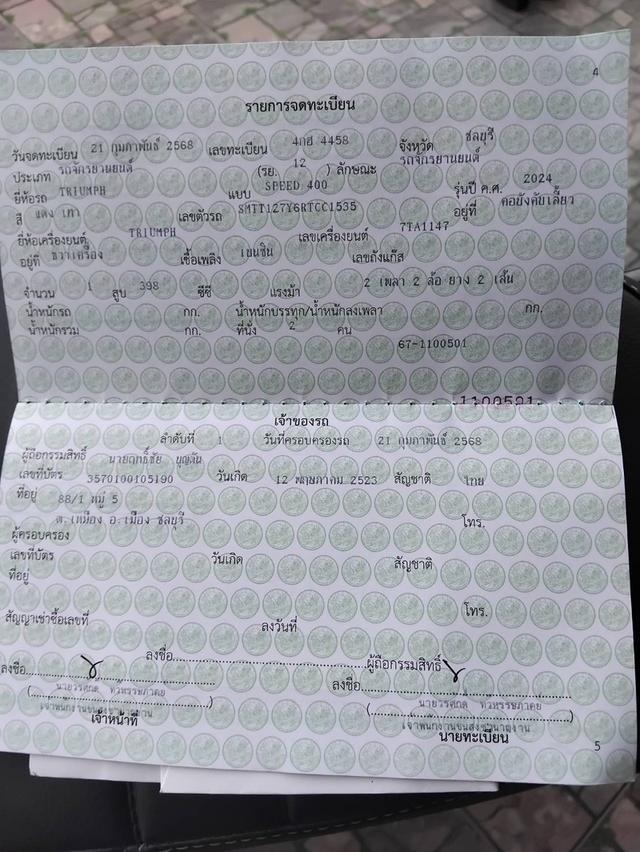 4
รายการจดทะเบียน
วันจดทะเบียน 21 กุมภาพันธ์ 2568 เลขทะเบียน 4กฮ 4458 จังหวัด ชลบุรี
ประเภท รถจักรยานยนต์ (รย. 12 ) ลักษณะ รถจักรยานยนต์
ยี่ห้อรถ TRIUMPH แบบ SPEED 400 รุ่นปี ค.ศ. 2024
สี แดง เทา เลขตัวรถ SMTT127Y6RTCC1535 อยู่ที่ คอบังคับเลี้ยว
ยี่ห้อเครื่องยนต์ TRIUMPH เลขเครื่องยนต์ 7TA1147
อยู่ที่ ขวาเครื่อง เชื้อเพลิง เบนซิน เลขถังแก๊ส
จำนวน 1 สูบ 398 ซีซี แรงม้า 2 เพลา 2 ล้อ ยาง 2 เส้น
น้ำหนักรถ กก. น้ำหนักบรรทุก/น้ำหนักลงเพลา กก.
น้ำหนักรวม กก. ที่นั่ง 2 คน
67-1100501
1100501
เจ้าของรถ
ลำดับที่ 1 วันที่ครอบครองรถ 21 กุมภาพันธ์ 2568
ผู้ถือกรรมสิทธิ์ นายฤทธิ์ชัย บุญตัน
เลขที่บัตร 3570100105190 วันเกิด 12 พฤษภาคม 2523 สัญชาติ ไทย
ที่อยู่ 88/1 หมู่ 5
ต.เหมือง อ.เมือง ชลบุรี โทร.
ผู้ครอบครอง
เลขที่บัตร วันเกิด สัญชาติ
ที่อยู่
โทร.
สัญญาเช่าซื้อเลขที่ ลงวันที่
ลงชื่อ ผู้ถือกรรมสิทธิ์
ลงชื่อ ลงชื่อ
เจ้าพนักงานขนส่งชำนาญงาน เจ้าพนักงานขนส่งชำนาญงาน
เจ้าหน้าที่ นายทะเบียน
5